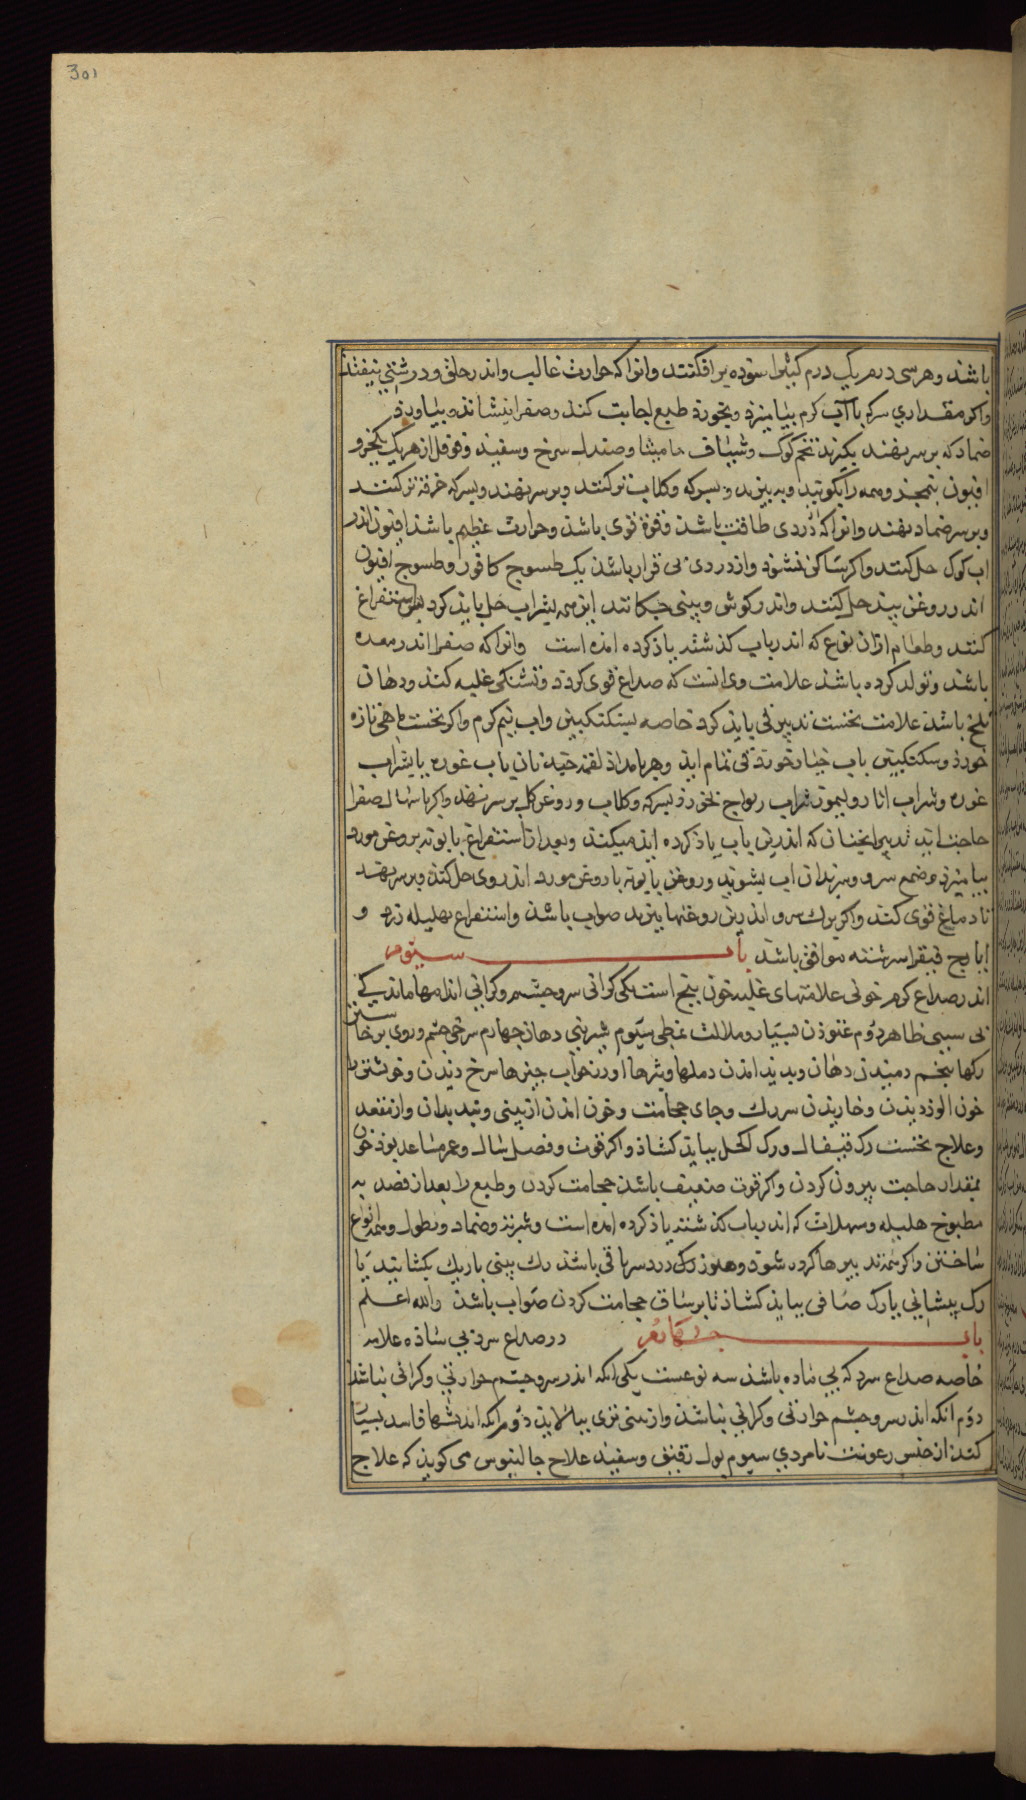 301
باشد وهر سی درم یک درم کتیرا سوده برافکنند وانرا که حرارت غالب واندر حلق ودرشتی نیفتد
واکر مقداری سرکه با آب کرم بیامیزد وبخورد طبع اجابت کند وصفرا بنشاند وبیاورد
ضماد که بر سر نهند بکیرند تخم کوک وشیاف مامیثا وصندل سرخ وسفید وفوفل از هریک یکجزو
افیون بنجیز وهمه را بکوبند وبه بیزند وبسرکه وکلاب تر کنند وبر سر نهند وبسرکه خرقه تر کنند
وبر سر ضماد نهند وانرا که دردی طاقت باشد وقوة قوی باشد وحرارت عظیم باشد افیون اندر
اب کوک حل کنند واکر ساکن نشود وازدردی بی قرار باشد یک طسوج کافور وطسوج افیون
اندر روغن بید حل کنند واندر کوش وبینی چکانند این همه بشراب حل باید کرد پس استفراغ
کنند وطعام ازان نوع که اندر باب کذشته یاد کرده امده است وانرا که صفرا اندر معده
باشد وتولد کرده باشد علامت وی انست که صداع قوی کردد وتشنکی غلبه کند ودهان
تلخ باشد علامت نخست تدبیر قی باید کرد خاصه بسکنکبین واب نیم کرم واکر نخست ماهی تازه
خورد وسکنکبین باب خیار خورد قی تمام اید وهر بامداد لقمه چند نان باب غوره یا بشراب
غوره وشراب انار ولیمو شراب ریواج بخورد بسرکه وکلاب وروغن کل بر سر نهد واکر باسهال صفرا
حاجت اید تدبیر انچنان که اندرین باب یاد کرده اید میکند وبعد از استفراغ بابونه بروغن مورد
بیامیزد وضمع سرو وبرندان اب بشوید وروغن بابونه با روغن مورد اندروی حل کند وبر سر نهد
تا دماغ قوی کند واکر برک سرو اندرین روغنها بپزند صواب باشد واستفراغ بهلیله زرد و
ایارج فیقرا سرشته موافق باشد باب سیوم
اندر صداع کرم خونی علامتهای غلبه خون پنج است یکی کرانی سر وچشم وکرانی اندامها ماندکی
بی سببی ظاهر دوم غنودن بسیار وملالت تمطی سیوم شیرینی دهان چهارم سرخی چشم وروی برخاستن
رکها پنجم دمیدن دهان وپدید امدن دملها وبثرها اندر خواب چیزها سرخ دیدن وخویشتن را
خون الود دیدن وخاریدن سر رک وجای حجامت وخون امدن از بینی وبن دندان واز مقعد
وعلاج نخست رک قیفال ورک اکحل بباید کشاد واکر قوت وفصل سال وعمر مساعد بود خون
بمقدار حاجت بیرون کردن واکر قوت ضعیف باشد حجامت کردن وطبع را بعد از فصد به
مطبوخ هلیله ومسهلات که اندر باب کذشته یاد کرده امده است وشربت وضماد ونطول وهمه انواع
ساختن واکر این تدبیرها کرده شود وهنوز رک درد سر باقی باشد رک بینی باریک بکشایند یا
رک پیشانی یا رک صافی بباید کشاد تا بر ساق حجامت کردن صواب باشد والله اعلم
باب چهارم در صداع سرد بی ساده علامه
خاصه صداع سرد که بی ماده باشد سه نوعست یکی انکه اندر سر وچشم حرارتی وکرانی نباشد
دوم انکه اندر سر وچشم حرارتی وکرانی نباشد واز بینی تری بپالاید دوم انکه اندیشها فاسد بسیار
کند از جنس رعونت نامردی سیوم بول رقیق وسفید علاج جالینوس می کوید که علاج